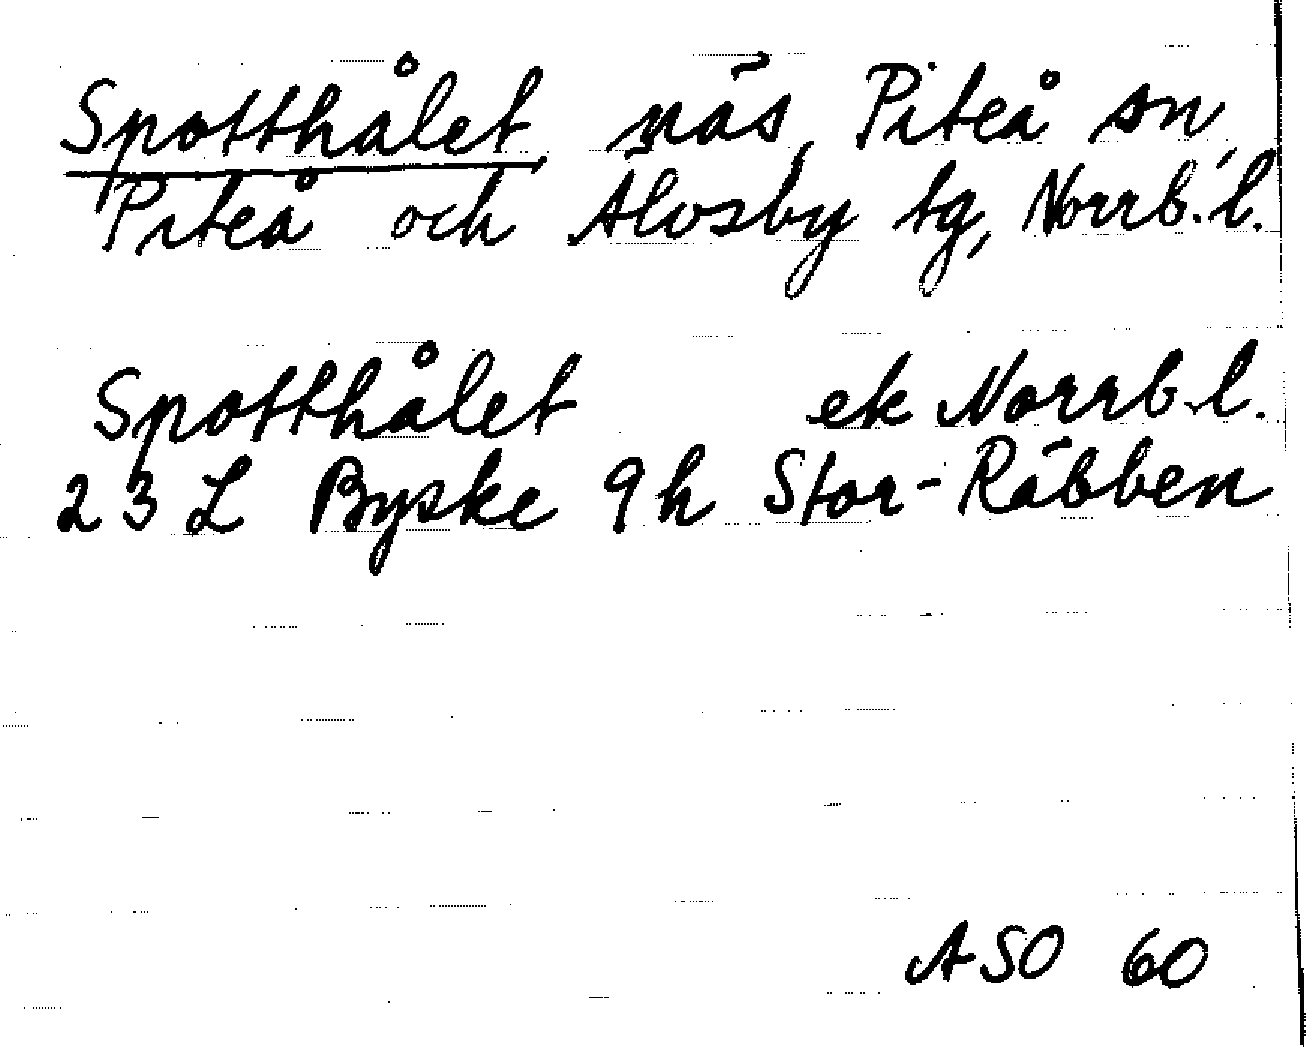 Spotthålet, näs, Piteå sn,
Piteå och Älvsby tg, Norrb. l.
Spotthålet ek Norrb. l.
23 L Byske 9h Stor-Räbben
ASO 60